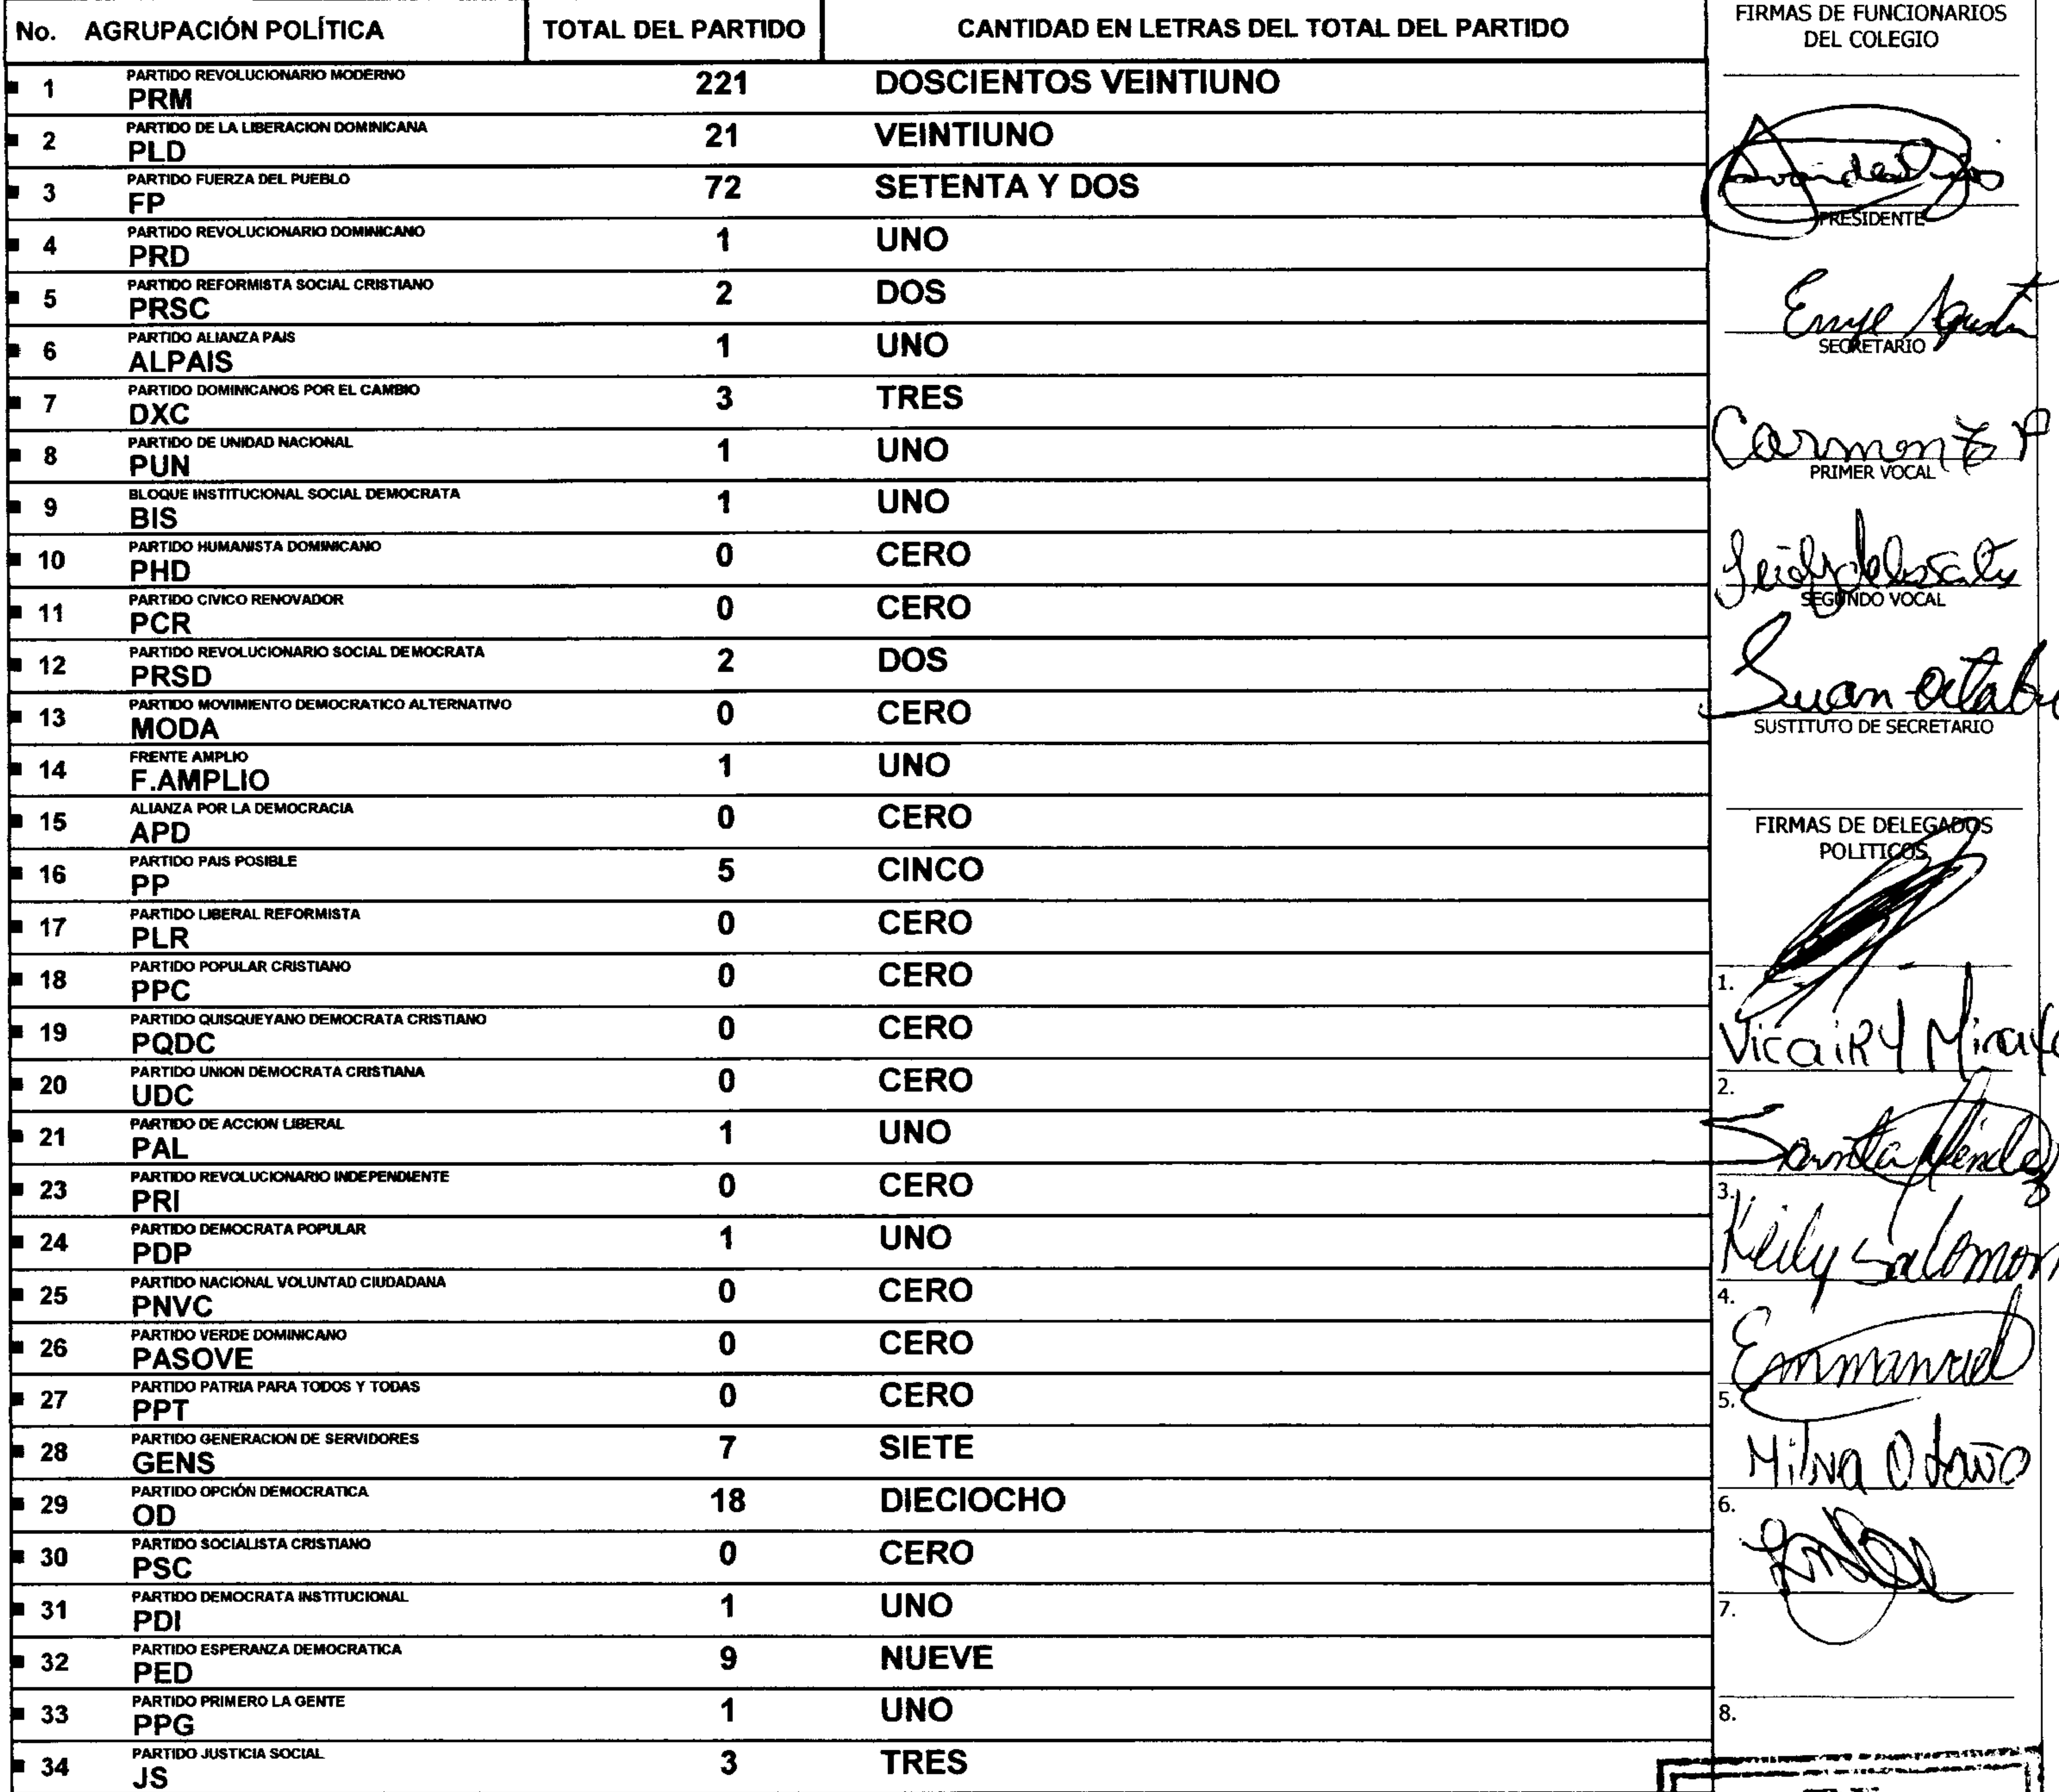 No. AGRUPACIÓN POLÍTICA TOTAL DEL PARTIDO CANTIDAD EN LETRAS DEL TOTAL DEL PARTIDO
1 PARTIDO REVOLUCIONARIO MODERNO
PRM 221 DOSCIENTOS VEINTIUNO
2 PARTIDO DE LA LIBERACION DOMINICANA
PLD 21 VEINTIUNO
3 PARTIDO FUERZA DEL PUEBLO
FP 72 SETENTA Y DOS
4 PARTIDO REVOLUCIONARIO DOMINICANO
PRD 1 UNO
5 PARTIDO REFORMISTA SOCIAL CRISTIANO
PRSC 2 DOS
6 PARTIDO ALIANZA PAIS
ALPAIS 1 UNO
7 PARTIDO DOMINICANOS POR EL CAMBIO
DXC 3 TRES
8 PARTIDO DE UNIDAD NACIONAL
PUN 1 UNO
9 BLOQUE INSTITUCIONAL SOCIAL DEMOCRATA
BIS 1 UNO
10 PARTIDO HUMANISTA DOMINICANO
PHD 0 CERO
11 PARTIDO CIVICO RENOVADOR
PCR 0 CERO
12 PARTIDO REVOLUCIONARIO SOCIAL DEMOCRATA
PRSD 2 DOS
13 PARTIDO MOVIMIENTO DEMOCRATICO ALTERNATIVO
MODA 0 CERO
14 FRENTE AMPLIO
F.AMPLIO 1 UNO
15 ALIANZA POR LA DEMOCRACIA
APD 0 CERO
16 PARTIDO PAIS POSIBLE
PP 5 CINCO
17 PARTIDO LIBERAL REFORMISTA
PLR 0 CERO
18 PARTIDO POPULAR CRISTIANO
PPC 0 CERO
19 PARTIDO QUISQUEYANO DEMOCRATA CRISTIANO
PQDC 0 CERO
20 PARTIDO UNION DEMOCRATA CRISTIANA
UDC 0 CERO
21 PARTIDO DE ACCION LIBERAL
PAL 1 UNO
23 PARTIDO REVOLUCIONARIO INDEPENDIENTE
PRI 0 CERO
24 PARTIDO DEMOCRATA POPULAR
PDP 1 UNO
25 PARTIDO NACIONAL VOLUNTAD CIUDADANA
PNVC 0 CERO
26 PARTIDO VERDE DOMINICANO
PASOVE 0 CERO
27 PARTIDO PATRIA PARA TODOS Y TODAS
PPT 0 CERO
28 PARTIDO GENERACION DE SERVIDORES
GENS 7 SIETE
29 PARTIDO OPCIÓN DEMOCRATICA
OD 18 DIECIOCHO
30 PARTIDO SOCIALISTA CRISTIANO
PSC 0 CERO
31 PARTIDO DEMOCRATA INSTITUCIONAL
PDI 1 UNO
32 PARTIDO ESPERANZA DEMOCRATICA
PED 9 NUEVE
33 PARTIDO PRIMERO LA GENTE
PPG 1 UNO
34 PARTIDO JUSTICIA SOCIAL
JS 3 TRES
FIRMAS DE FUNCIONARIOS
DEL COLEGIO
PRESIDENTE
SECRETARIO
Carmen
PRIMER VOCAL
SEGUNDO VOCAL
SUSTITUTO DE SECRETARIO
FIRMAS DE DELEGADOS
POLITICOS
1.
2.
3.
Keily Salomon
4.
Emmanuel
5.
Milva
6.
7.
8.